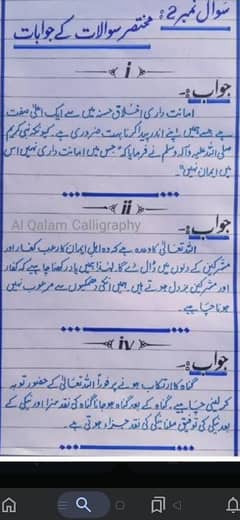 سوال نمبر 2: مختصر سوالات کے جوابات
i
جواب:-
امانت داری اخلاق حسنہ میں سے ایک اعلیٰ صفت
ہے جسے ہمیں اپنے اندر پیدا کرنا بہت ضروری ہے۔ کیونکہ نبی کریم
صلی اللہ علیہ وآلہ وسلم نے فرمایا کہ "جس میں امانت داری نہیں اس
میں ایمان نہیں"۔
ii
جواب:-
Al Qalam Calligraphy
اللہ تعالیٰ کا وعدہ ہے کہ وہ اہل ایمان کا رعب کفار اور
مشرکین کے دلوں میں ڈال دے گا۔ لہٰذا ہمیں یاد رکھنا چاہیے کہ کفار
اور مشرکین بزدل ہوتے ہیں ہمیں انکی دھمکیوں سے مرعوب نہیں
ہونا چاہیے۔
iv
جواب:-
گناہ کا ارتکاب ہونے پر فوراً اللہ تعالیٰ کے حضور توبہ
کر لینی چاہیے۔ گناہ کے بعد گناہ ہو جانا گناہ کی نقد سزا اور نیکی کے
بعد نیکی کی توفیق ملنا نیکی کی نقد جزاء ہوتی ہے۔